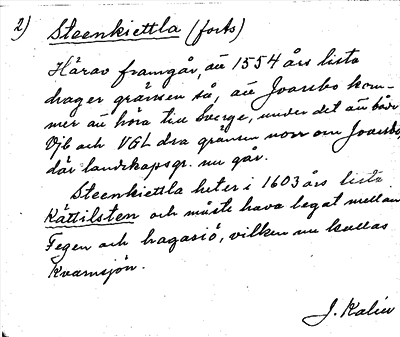 2) Steenkiettla (forts)
Härav framgår, att 1554 års lista
drager gränsen så, att Joarsbo kom-
mer att höra till Sverge, under det att både
Vjb och VGL dra gränsen norr om Joarsbo,
där landskapsgr. nu går.
Steenkiettla heter i 1603 års lista
Kättilsten och måste hava legat mellan
Fegen och hagasiö, vilken nu kallas
Kvarnsjön.
J. Kalén